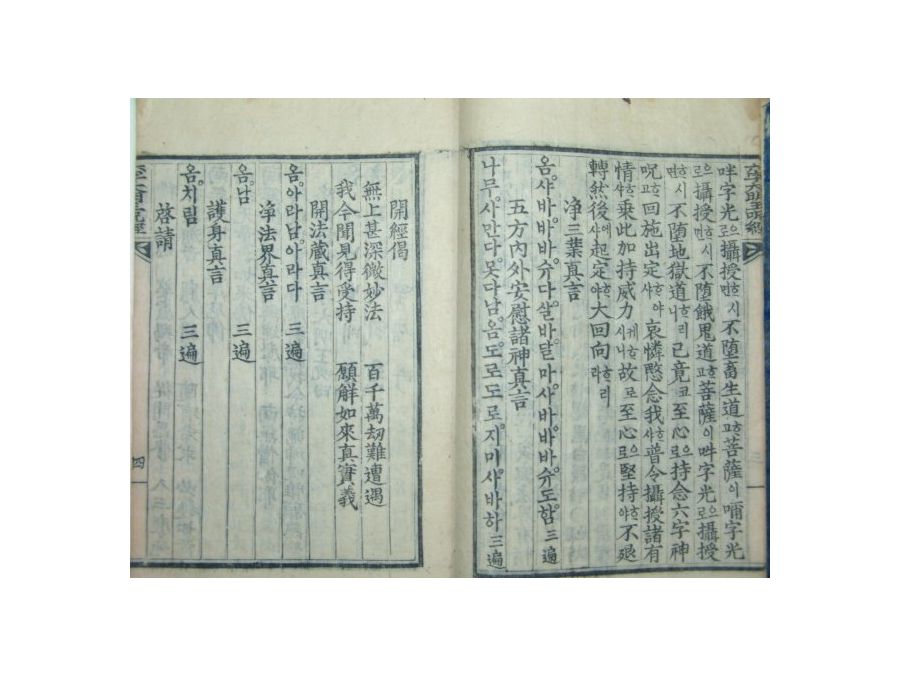 吽字光으로攝授한시不堕畜生道고하菩薩이㖹字光
으로攝授한시不堕餓鬼道고하菩薩이吽字光으로攝授
한시不堕地獄道니하리已竟고至心으로持念六字神
呪고하回施出定샤하야哀憐愍念我샤하普令攝授諸有
情샤하乘此加持威力시니케하故로至心으로堅持야하不退
轉然後에샤起定야하大回向라하리
淨三業真言
옴。샤。바바。바。슈다。살바。달마。샤바。바。바。슈도。함。三遍
五方內外安慰諸神真言
나무。사만다。못다남。옴。도로도로。지미。사바하三遍
開經偈
無上甚深微妙法 百千萬劫難遭遇
我今聞見得受持 願解如來真實義
開法蔵真言
옴。아라남。아라다 三遍
净法界真言
옴。남 三遍
護身真言
옴。치림 三遍
啓請
四